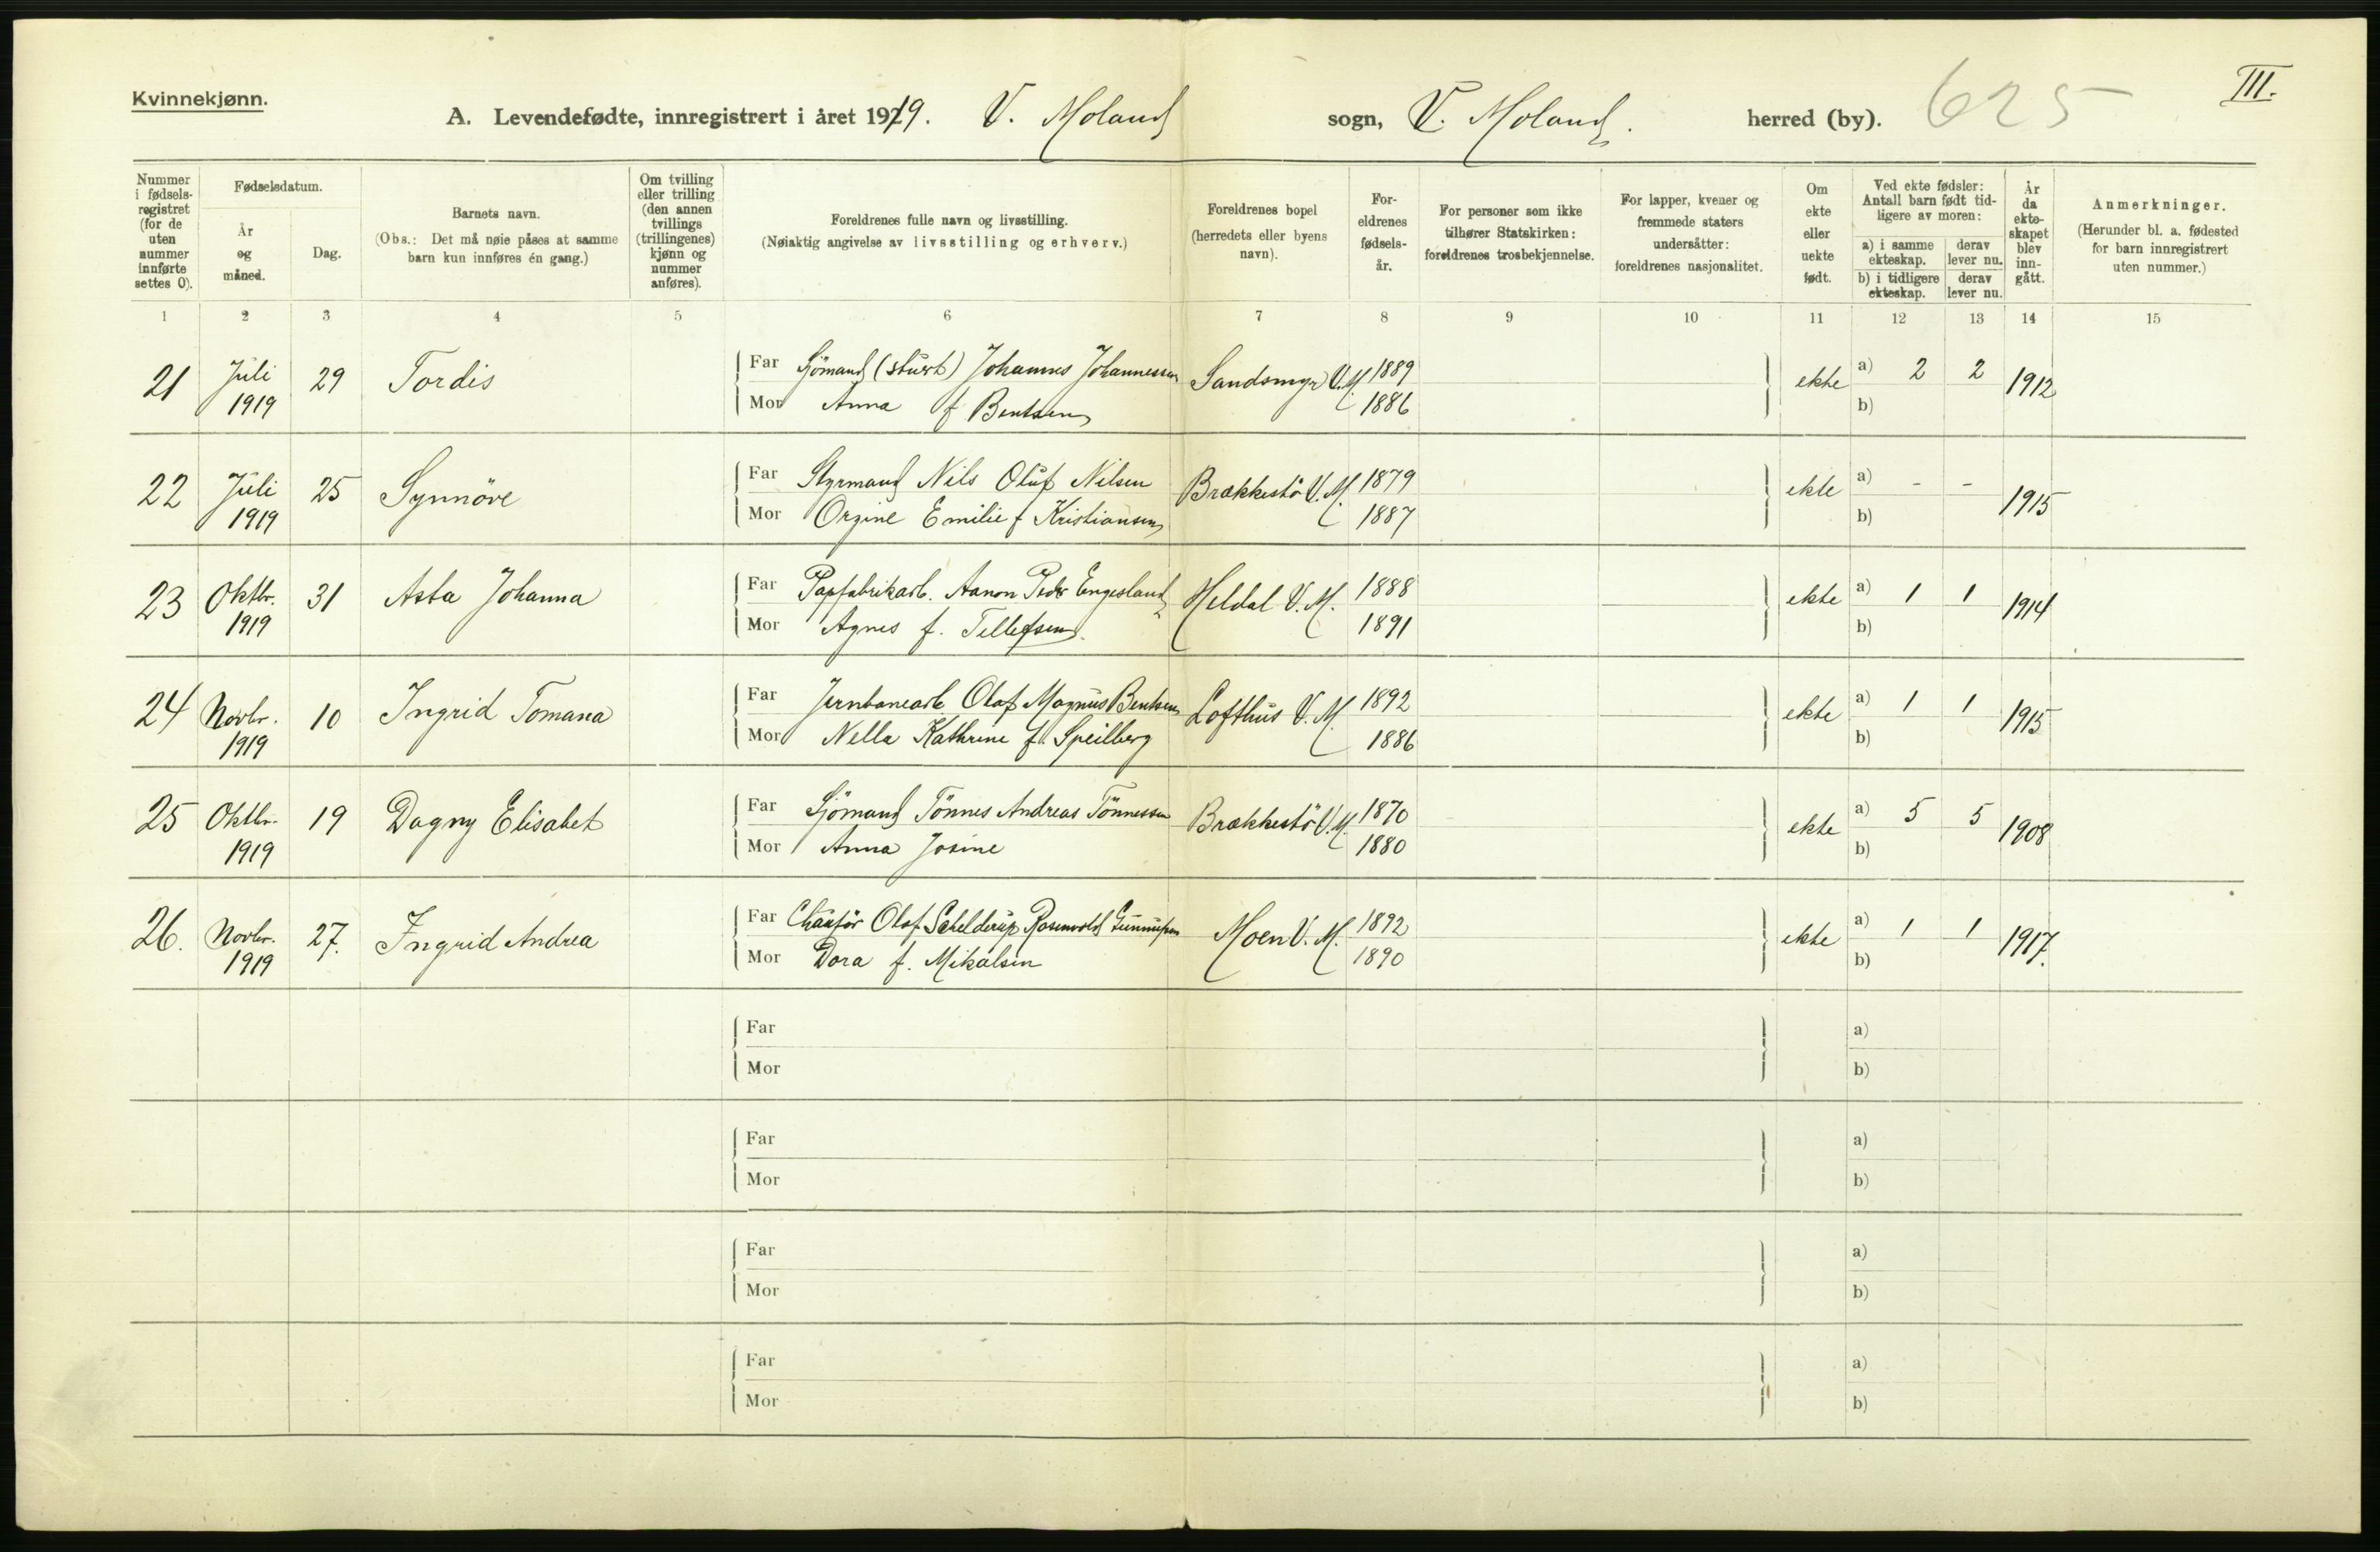 Kvinnekjønn.
III.
A. Levendefødte, innregistrert i året 1919. V. Moland sogn, V. Moland. herred (by). 625
Nummer i fødselsregistret (for de uten nummer innførte settes 0).
Fødselsdatum.
År og måned.
Dag.
Barnets navn.
(Obs.: Det må nøie påses at samme barn kun innføres én gang.)
Om tvilling eller trilling (den annen tvillings (trillingenes) kjønn og nummer anføres).
Foreldrenes fulle navn og livsstilling.
(Nøiaktig angivelse av livsstilling og erhverv.)
Foreldrenes bopel (herredets eller byens navn).
Foreldrenes fødselsår.
For personer som ikke tilhører Statskirken: foreldrenes trosbekjennelse.
For lapper, kvener og fremmede staters undersåtter: foreldrenes nasjonalitet.
Om ekte eller uekte født.
Ved ekte fødsler: Antall barn født tidligere av moren:
a) i samme ekteskap.
derav lever nu.
b) i tidligere ekteskap.
derav lever nu.
År da ekteskapet blev inngått.
Anmerkninger.
(Herunder bl. a. fødested for barn innregistrert uten nummer.)
1 2 3 4 5 6 7 8 9 10 11 12 13 14 15
21 Juli 1919 29 Tordis
Far Sjömand (stuert) Johannes Johannessen Sandsmyr V.M. 1889 ekte a) 2 2 1912
Mor Anna f Bentsen 1886 b)
22 Juli 1919 25 Synnöve
Far Styrmand Nils Oluf Nilsen Brækkestö V.M. 1879 ekte a) - - 1915
Mor Orgine Emilie f Kristiansen 1887 b)
23 Oktbr. 1919 31 Asta Johanna
Far Papfabrikarb. Aanon Peder Engesland Heldal V.M. 1888 ekte a) 1 1 1914
Mor Agnes f. Tellefsen. 1891 b)
24 Novbr. 1919 10 Ingrid Tomana
Far Jernbanearb. Olaf Magnus Bentsen Lofthus V.M. 1892 ekte a) 1 1 1915
Mor Nella Kathrine f. Speilberg 1886 b)
25 Oktbr. 1919 19 Dagny Elisabet
Far Sjömand Tönnes Andreas Tönnessen Brækkestö V.M. 1870 ekte a) 5 5 1908
Mor Anna Josine 1880 b)
26. Novbr. 1919 27. Ingrid Andrea
Far Chauför Olaf Schelderup Rosenvold Moen V.M. 1892 ekte a) 1 1 1917.
Mor Dora f. Mikalsen 1890 b)
Far a)
Mor b)
Far a)
Mor b)
Far a)
Mor b)
Far a)
Mor b)